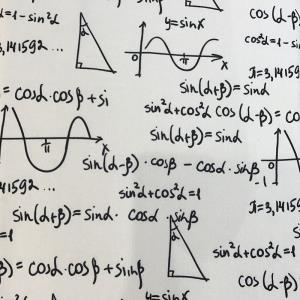 α=1-sin²α
y=sinx
cos(α-β)
cos²α=1-si
3,141592...
0
π
x
π=3,14
= cosα·cosβ + si
sin(α+β) = sinα
sin²α+cos²α
cos(α-β) = co
sin(α+β) = sinα
π
x
sin(α-β)·cosβ - cosα·sinβ
0
-1
141592...
sin²α+cos²α=1
π=3,1415
sin(α+β) = sinα· cosα·sinβ
=1
α
sin²α+cos²α=1
β) = cosα·cosβ+sinβ
cos(α-β)
y=sinx